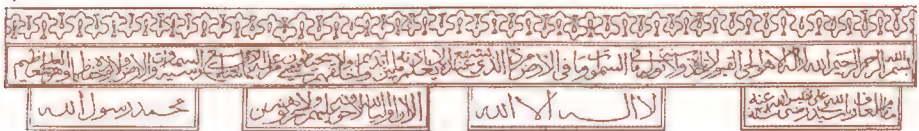 بسم الله الرحمن الرحيم الله لا اله الا هو الحي القيوم لا تاخذه سنة ولا نوم له ما في السموات وما في الارض من ذا الذي يشفع عنده الا باذنه يعلم ما بين ايديهم وما خلفهم ولا يحيطون بشئ من علمه الا بما شاء وسع كرسيه السموات والارض ولا يؤده حفظهما وهو العلي العظيم
لا اله الا الله
الا ان اولياء الله لا خوف عليهم ولا هم يحزنون
محمد رسول الله